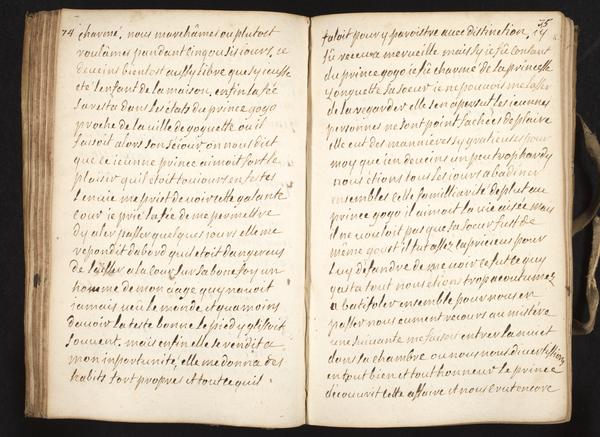 74
charmé, nous marchâmes ou plutost
roulâmes pandant cinq ou sis iours, ie
deueins bientost aussy libre que sy ieusse
eté lenfant de la maison, enfin la feé
saresta dans les états du prince gogo
proche de la ville de goguette ou il
faisoit alors son seiour on nous dict
que ce ieune prince aimoit fort le
plaisir quil etoit tousiours en festes
lenuie me prist de voir cette galante
cour ie prié la feé de me permettre
dy aler passer quelques iours elle me
repondit dabord quil etoit dangereus
de laisser a la cour sur sa bone foy un
homme de mon aage quy nauoit
iamais veü le monde, et qua moins
dauoir la teste bonne le pied y glisoit
souuent, mais enfin elle se rendit a
mon inportunité, elle me donna des
habits fort propres et tout ce quil
75
faloit pour y paroistre auec distinction, iy
fü receu a merueille mais sy ie fü contant
du prince gogo ie fü charmé de la princesse
gonguette sa soeur ie ne pouuois me lasser
de la regarder elle sen apersut les ieunes
personnes ne sont point fachées de plaire
elle eut des manieres sy gratieuses pour
moy que ien deueins un peu trop hardy
nous étions tous les iours a badiner
ensembles cette familliarité deplut au
prince gogo il aimoit la vie aisée mais
il ne vouloit pas que sa soeur fust de
même goust il fut assez caprieieus pour
luy défandre de me voir ce fut ce quy
gasta tout nous etions trop acoutumez
a batifoler ensemble pour nous en
passer nous eumes recours au mistere
une suiuante me faisoit entrer la nuict
dans sa chambre ou nous nous diuertissions
en tout bien et tout honneur le prince
decouurit cette affaire et nous creut encore